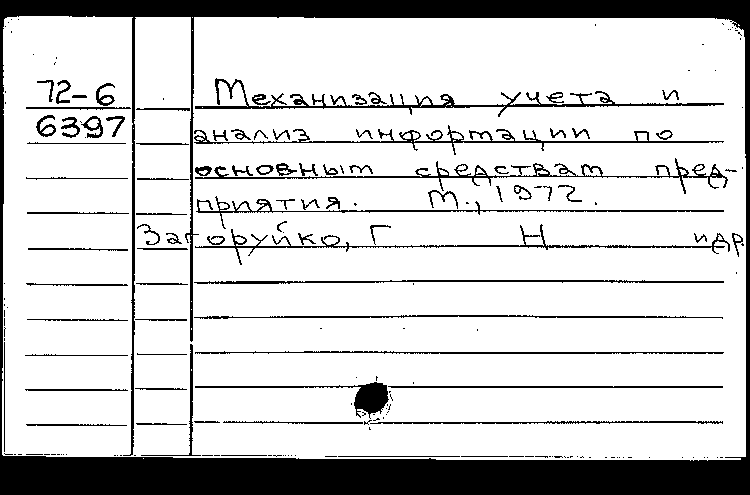 72-6 Механизация учета и
6397 анализ информации по
основным средствам пред-
приятия. М., 1972.
Загоруйко, Г Н и др